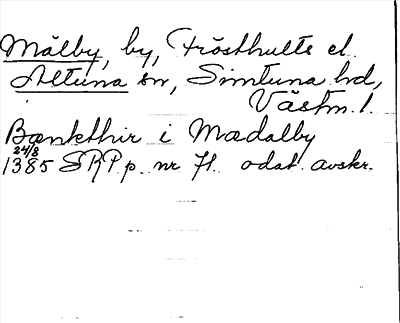 Målby, by, Frösthults el.
Altuna sn, Simtuna hd,
Västm. l.
Bænkthir i Mædalby
24/8
1385 SRPp. nr 71. odat. avskr.